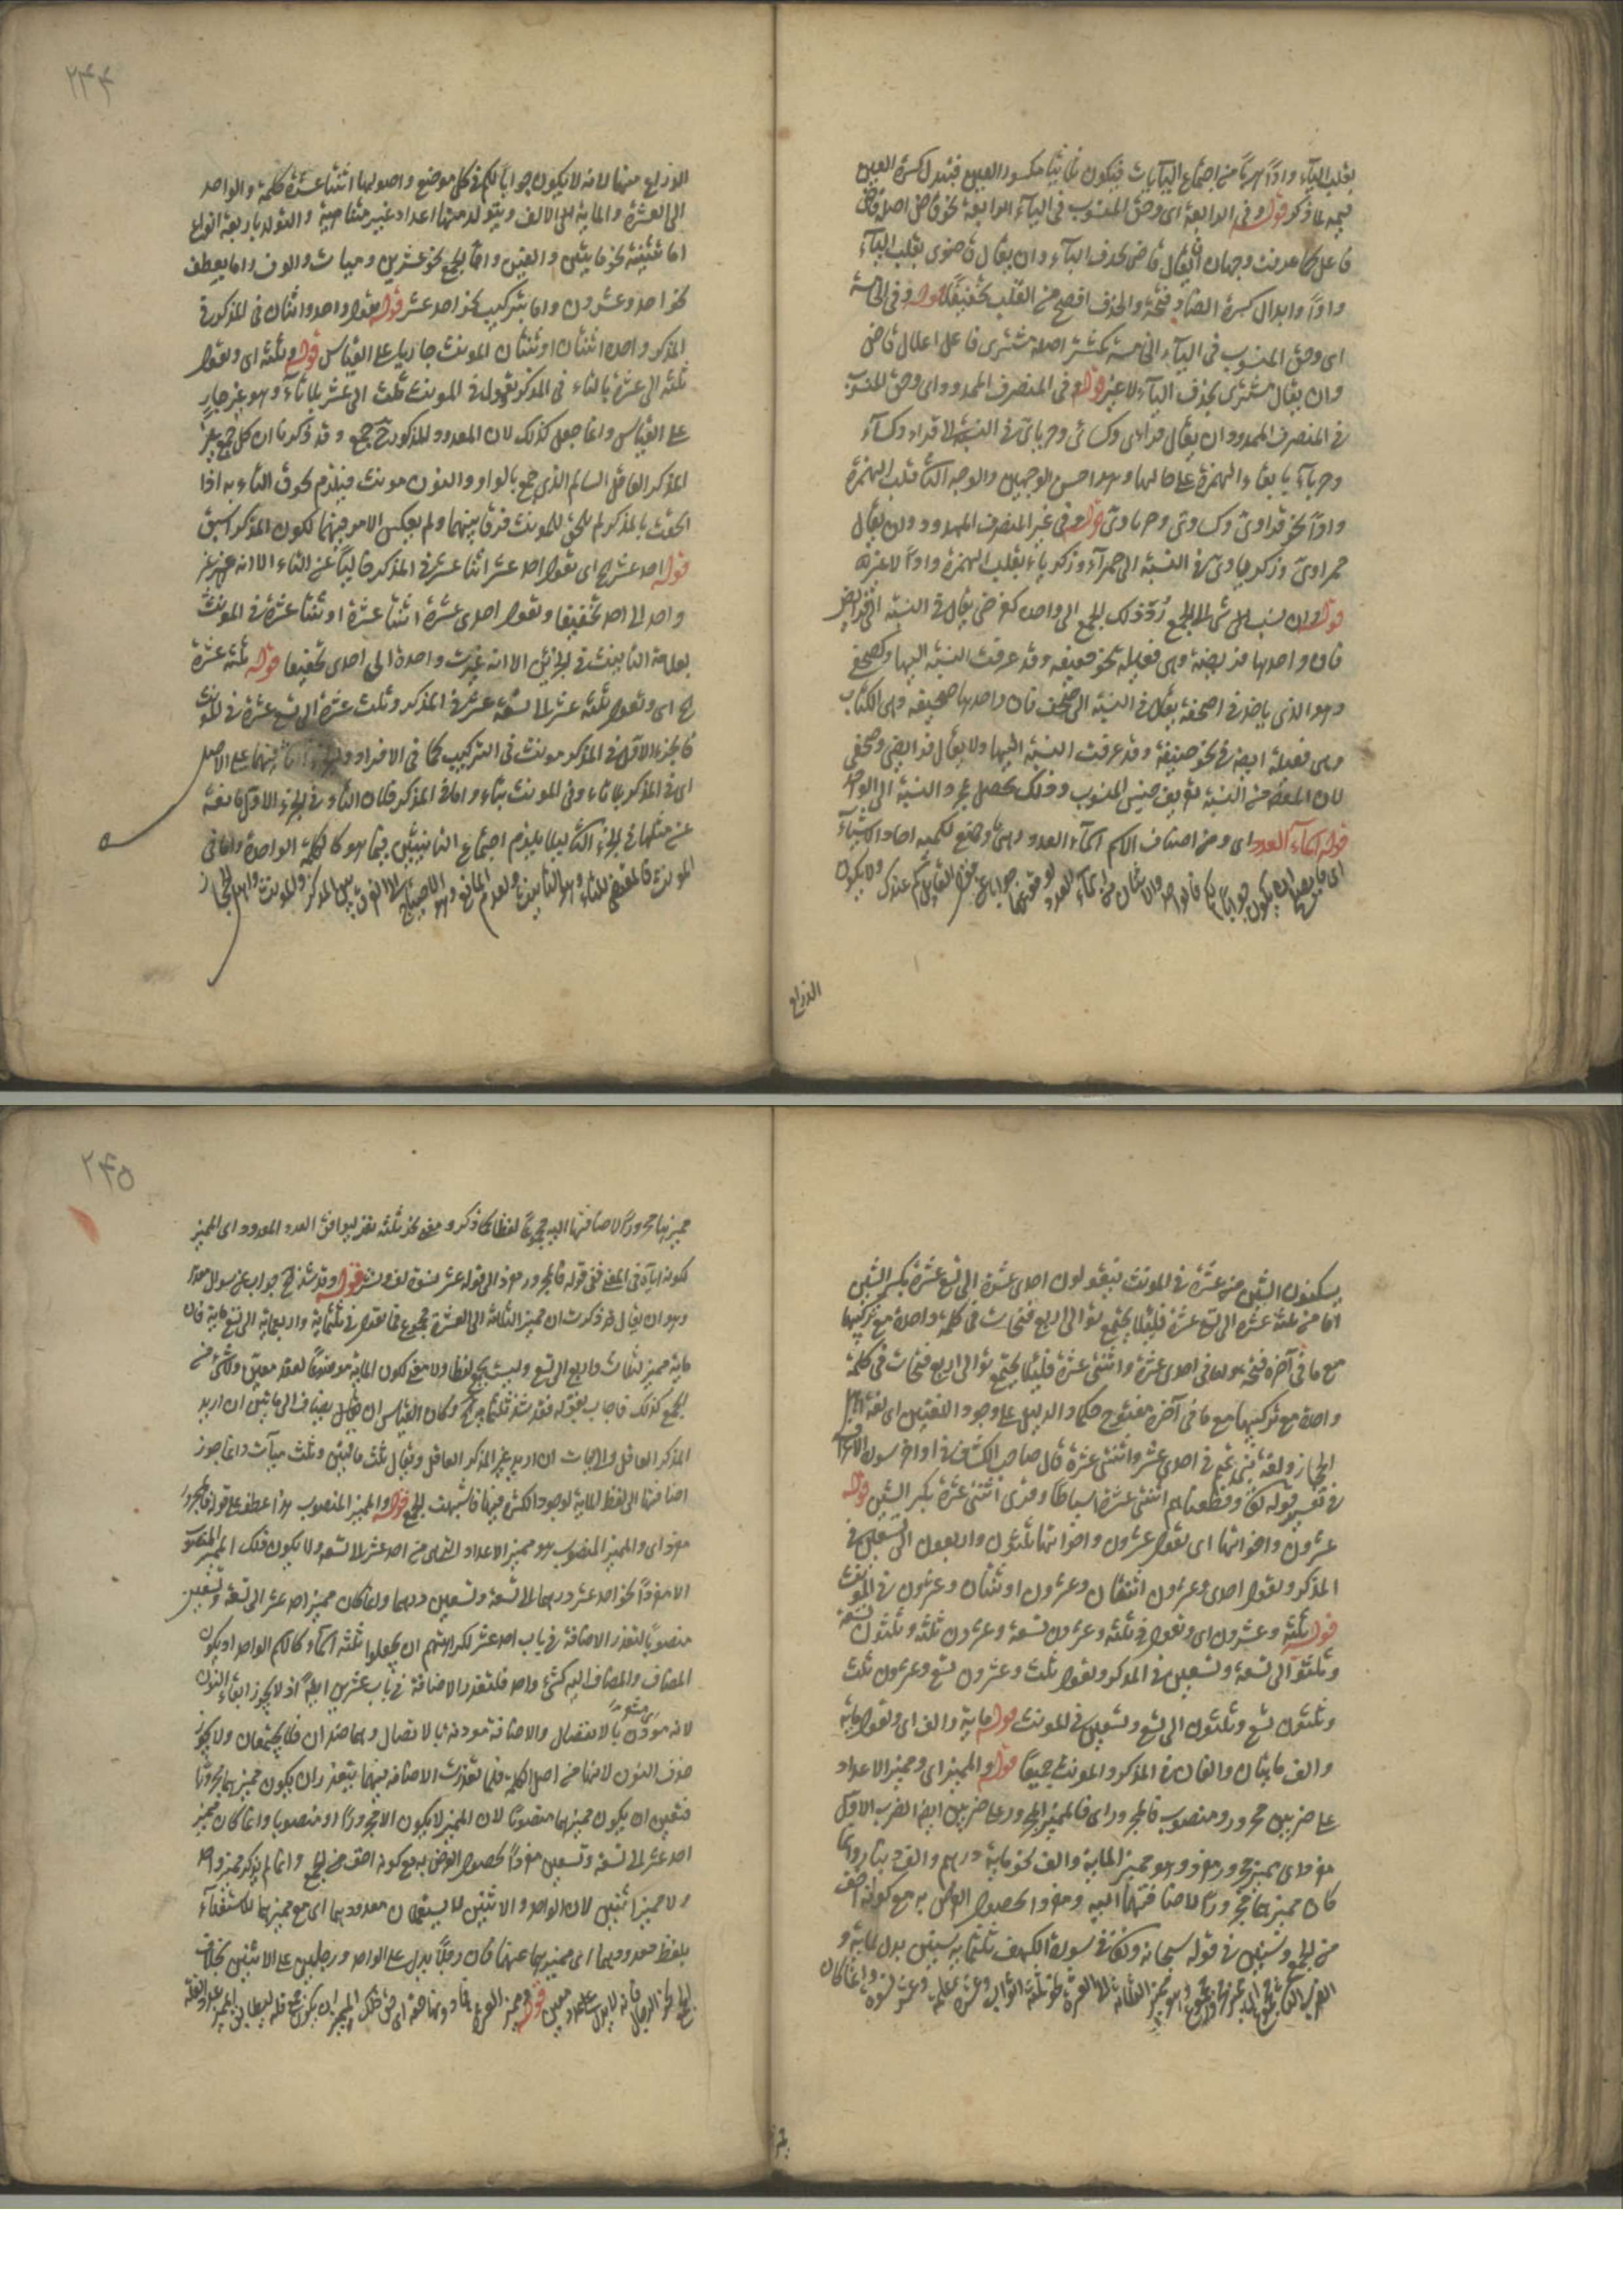 بقلب الياء واوا هربا من اجتماع الياآت فيكون ثمانيا مكسور العين فتبدل كسرة العين
فتحة لما ذكر قوله وفى الرابعة اى وحق المنسوب فى الياء الرابعة نحو قاض اصله قاضى
فاعل كما عرفت وجهان ان يقال قاضى بحذف الياء وان يقال قاضوى بقلب الياء
واوا وابدال كسرة الضاد فتحة والحذف افصح من القلب تخفيفا قوله وفى الخامسة
اى وحق المنسوب فى الياء الخامسة كمشتر اصله مشترى فاعل اعلال قاض
وان يقال مشترى بحذف الياء لا غير قوله وفى المنصرف الممدود اى وحق المنسوب
فى المنصرف الممدود ان يقال قرائى وكسائى وحربائى فى النسبة الى قراء وكساء
وحرباء بابقاء الهمزة على حالها وهو احسن الوجهين والوجه الثانى قلب الهمزة
واوا نحو قراوى وكساوى وحرباوى قوله وفى غير المنصرف الممدود وان يقال
حمراوى وزكرياوى فى النسبة الى حمراء وزكرياء بقلب الهمزة واوا لا غير
قوله وان نسب الى شى الى الجمع رد ذلك الجمع الى واحده كفرضى يقال فى النسبة الى فرايض
فان واحدها فريضة وهى فعيلة نحو حنيفة وقد عرفت النسبة اليها وكصحفى
وهو الذى ياخذ فى اصحفة يقال فى النسبة الى صحف فان واحدها صحيفة وهى الكتاب
وهى فعيلة ايضا فى نحو حنيفة وقد عرفت النسبة اليها ولا يقال فرايضى وصحفى
لان الغرض من النسبة تعريف جنس المنسوب وذلك يحصل بمجرد النسبة الى الواحد
قوله اسماء العدد اى ومن اصناف الاسم اسماء العدد وهى ما وضع لكمية احاد الاشياء
الذراع
٢٤٤
الذراع منها لانه لا يكون جوابا لكم فى كل موضع واصولها اثنتا عشرة كلمة والواحد
الى العشرة والماية الى الالف ويتولد منها اعداد غير متناهية والتولد باربعة انواع
اما تثنية نحو مايتين والفين واما بجمع نحو عشرين وميات والوف واما بعطف
نحو احد وعشرون واما بتركيب نحو احد عشر قوله تقول واحد واثنان فى المذكور فى
المذكر واحدة اثنتان او ثنتان المونث جاريا على القياس قوله وثلثة اى وتقول
ثلثة الى عشرة بالتاء فى المذكر وتقول فى المونث ثلث الى عشر بلا تاء وهو غير جار
على القياس وانما جعل كذلك لان المعدود المذكور جمع وقد ذكرنا ان كل جمع غير
المذكر العاقل السالم الذى جمع بالواو والنون مونث فيلزم لحوق التاء به اذا
الحقت بالمذكر لم يلحق للمونث فرقا بينهما ولم يعكس الامر فيهما لكون المذكر اسبق
قوله احد عشر اى تقول احد عشر اثنا عشر فى المذكر خاليا عن التاء الا انه غير
واحد الى احد تخفيفا وتقول احدى عشرة اثنتا عشرة او ثنتا عشرة فى المونث
بعلامة التانيث فى الجزئين الا انه غيرت واحدة الى احدى تخفيفا قوله ثلثة عشرة
الخ اى وتقول ثلثة عشر الى تسعة عشر فى المذكر وثلث عشرة الى تسع عشرة فى المونث
فالجزء الاول فى المذكر مونث فى التركيب كما فى الافراد
اى فى المذكر بلا تاء وفى المونث بتاء واما فى المذكر فلان التاء فى الجزء الاول مانعة
عن مثلها فى الجزء الثانى ليلا يلزم اجتماع التانيثين فيما هو كالكلمة الواحدة واما فى
المونث فالمقتضى للتاء وهو التانيث ولعدم المانع وهو الاحتياج الى الفرق بين المذكر والمونث واهل الحجاز
يسكنون الشين من عشرة فى المونث فيقولون احدى عشرة الى تسع عشرة بكسر الشين
اما من ثلثة عشرة الى تسع عشرة فليلا يجتمع توالى اربع فتحات فى كلمة واحدة مع تركيبها
مع ما فى آخره فتحة واما فى احدى عشرة واثنتى عشرة فليلا يجتمع توالى اربع فتحات فى كلمة
واحدة مع تركيبها مع ما فى آخره مفتوح حكما والدليل على وجود اللغتين اى لغة اهل
الحجاز ولغة بنى تميم فى احدى عشر واثنتى عشرة قال صاحب الكشاف فى اواخر سورة الاعراف
فى تفسير قوله تعالى وقطعناهم اثنتى عشرة اسباطا وقرئ اثنتى عشرة بكسر الشين قوله
عشرون واخواتها اى تقول عشرون واخواتها ثلثون واربعون الى تسعين فى
المذكر وتقول احدى وعشرون اثنتان وعشرون او ثنتان وعشرون فى المونث
قوله ثلثة وعشرون اى وتقول فى ثلثة وعشرون تسعة وعشرون ثلثة وثلثون تسعة
وثلثون الى تسعة وتسعين فى المذكر وتقول ثلث وعشرون تسع وعشرون ثلث
وثلثون تسع وثلثون الى تسع وتسعين فى المونث قوله ماية والف اى وتقول ماية
والف مايتان والفان فى المذكر والمونث جميعا قوله والمميز اى ومميز الاعداد
على ضربين مجرور ومنصوب فالمجرور اى فالمميز المجرور على ضربين ايضا الضرب الاول
مفرد اى مميز مجرور مفرد وهو مميز الماية والف نحو ماية درهم والف دينار وانما
كان مميزهما مجرورا لاضافتهما اليه ومفردا لحصول الغرض به مع كونه اخف
من الجمع وسنين فى قوله سبحانه وتعالى فى سورة الكهف ثلثماية سنين بدل لماية و
٢٤٥
مميزها مجرورا لاضافتها اليه مجموعا لفظا كما ذكر ومعنى نحو ثلثة نفر ليوافق العدد المعدود اى المميز
لكونه اياه فى المعنى ففى قوله فالمجرور مفرد الى قوله عشر نسوة لف ونشر قوله وقد شذ الخ جواب عن سوال مقدر
وهو ان يقال قد ذكرت ان مميز الثلثة الى العشرة مجموع فما تقول فى ثلثماية واربعماية الى تسعماية فان
ماية مميز لثلث واربع الى تسع وليست بجمع لفظا ولا معنى لكون الماية موضوعا لعقد معين ولا شى من
الجمع كذلك فاجاب بقوله فقد شذ ثلثماية وكان القياس ان يقال يضاف الى مايتين ان اريد
المذكر العاقل والايجات ان اريد غير المذكر العاقل ويقال ثلث مائتين وثلث ميآت وانما جوز
اضافتها الى لفظ الماية لوجود الكثرة فيها فاشبهت الجمع قوله والمميز المنصوب هذا عطف على قوله فالمجرور
مفرد اى والمميز المنصوب هو مميز الاعداد التى من احد عشر الى تسعة ولا يكون ذلك المميز المنصوب
الا مفردا نحو احد عشر درهما الى تسعة وتسعين درهما وانما كان مميز احد عشر الى تسعة وتسعين
منصوبا لتعذر الاضافة فى باب احد عشر لكراهتهم ان يجعلوا ثلثة اسماء كالاسم الواحد اذ يكون
المضاف والمضاف اليه كشئ واحد فلتعذر الاضافة فى باب عشرين ايضا اذ لا يجوز ابقاء النون
لانه موذن بالانفصال والاضافة موذنة بالاتصال وهما ضدان فلا يجتمعان ولا يجوز
حذف النون لانها من اصل الكلمة فلما تعذرت الاضافة فيهما يتعذر ان يكون مميزهما مجرورا
فتعين ان يكون مميزهما منصوبا لان المميز لا يكون الا مجرورا او منصوبا وانما كان مميز
احد عشر الى تسعة وتسعين مفردا لحصول الغرض به مع كونه اخف من الجمع وانما لم يذكر مميز واحد
ولا مميز اثنين لان الواحد والاثنين لا يستعملان معدودهما اى مع مميزهما للاستغناء
بلفظ معدودهما اى مميزهما عنهما فان رجلا يدل على الواحد ورجلين على الاثنين بخلاف